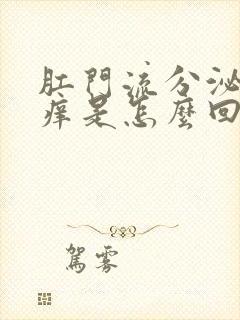 肛門流分泌
痒是怎麼回
駕霧